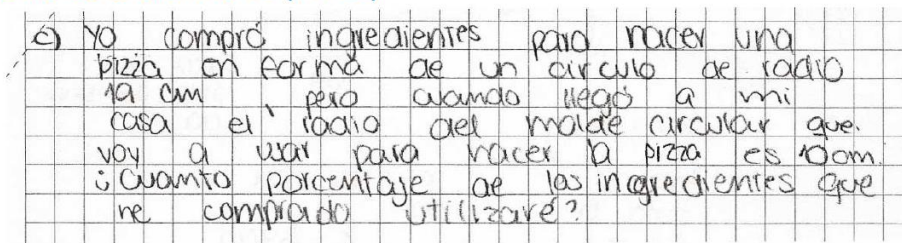 c) Yo compró ingredientes para hacer una
pizza en forma de un circulo de radio
19 cm, pero cuando llegó a mi
casa el radio del molde circular que
voy a usar para hacer la pizza es 10cm.
¿Cuanto porcentaje de los ingredientes que
he comprado utilizaré?